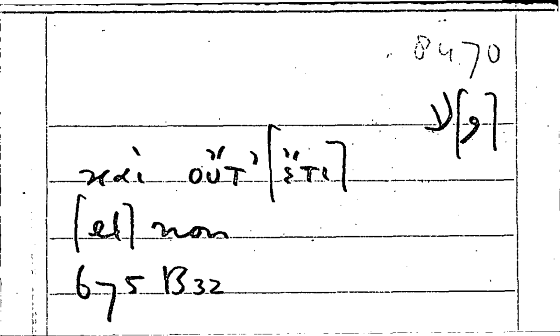 8470
καὶ οὔτ' [ἔτι]
[et] non
675 B32